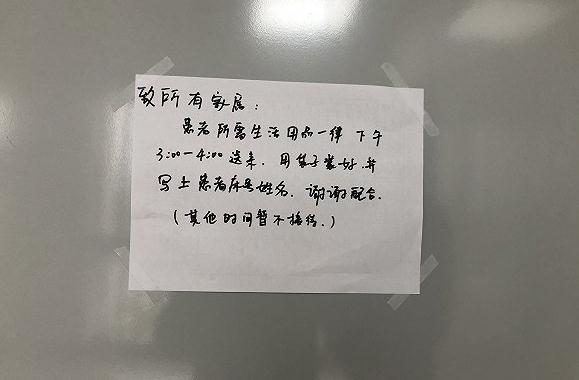 致所有家属：
患者所需生活用品一律下午
3:00-4:00送来，用袋子装好，并
写上患者床号姓名，谢谢配合．
（其他时间暂不接待．）